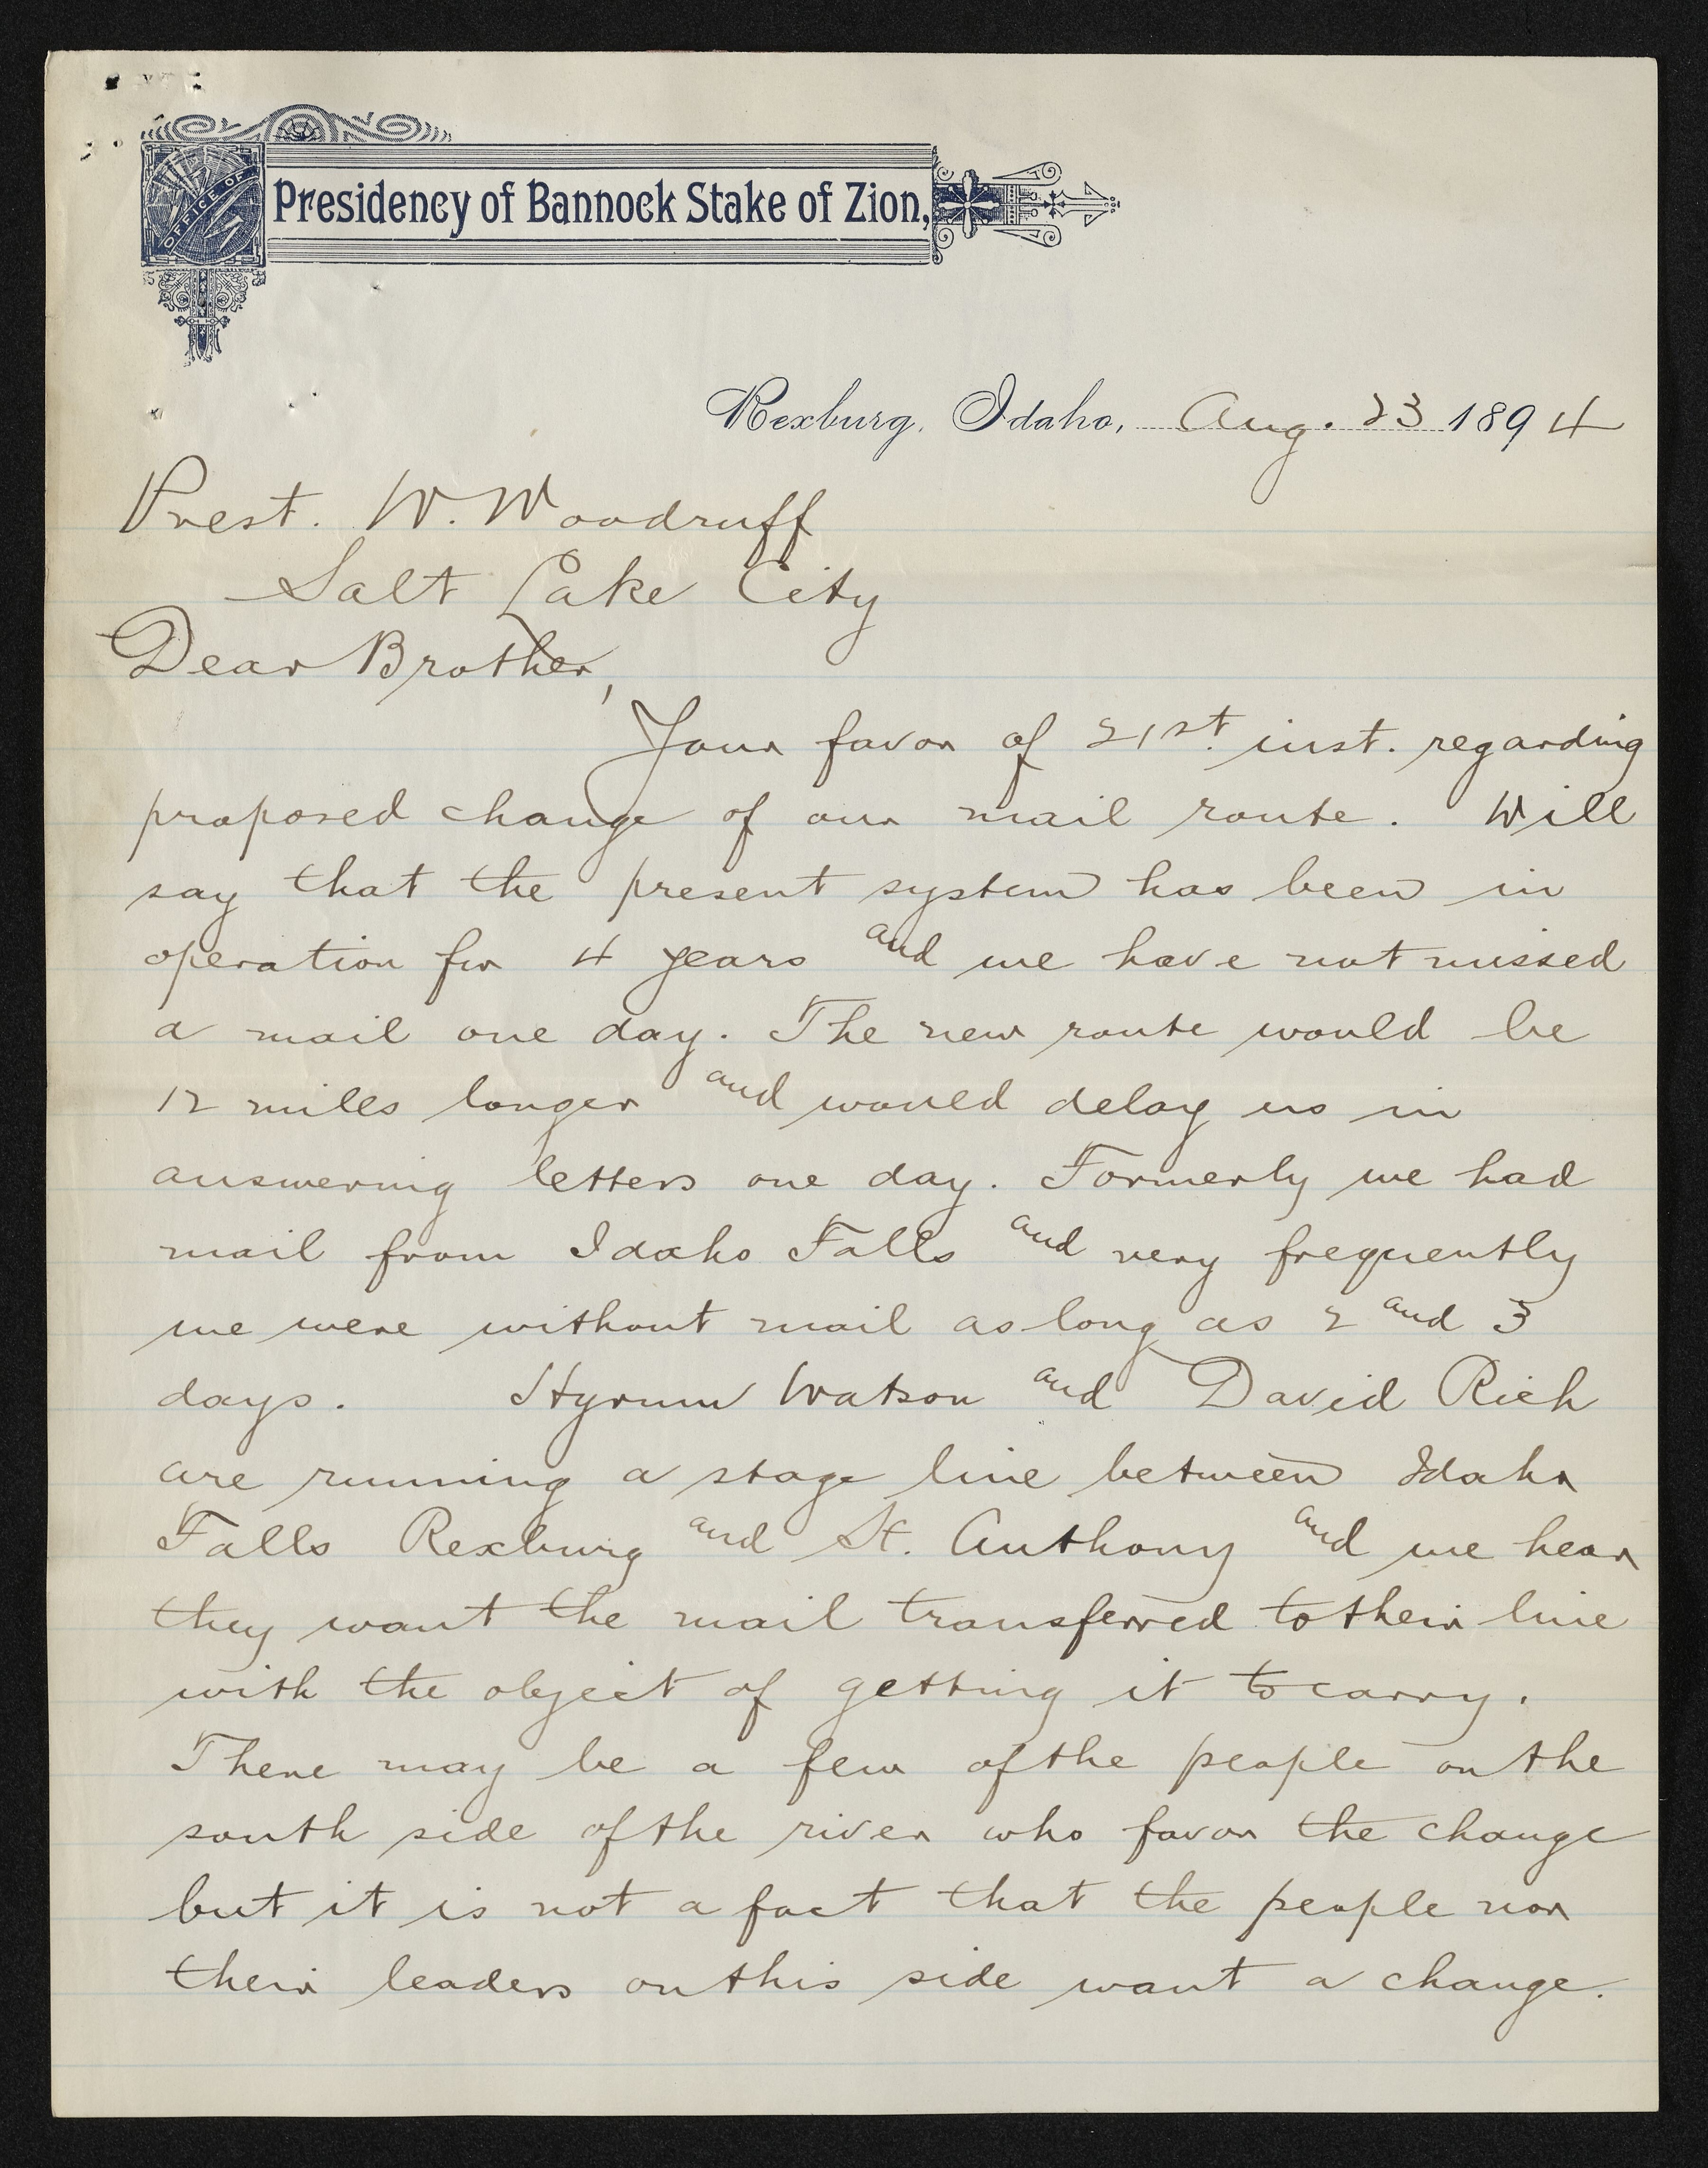 OFFICE OF
Presidency of Bannock Stake of Zion,
Rexburg, Idaho, Aug. 23 1894
Prest. W. Woodruff
Salt Lake City
Dear Brother,
Your favor of 21st. inst. regarding
proposed change of our mail route. Will
say that the present system has been in
operation for 4 years and we have not missed
a mail one day. The new route would be
12 miles longer and would delay us in
answering letters one day. Formerly we had
mail from Idaho Falls and very frequently
we were without mail as long as 2 and 3
days. Hyrum Watson and David Rich
are running a stage line between Idaho
Falls Rexburg and St. Anthony and we hear
they want the mail transferred to their line
with the object of getting it to carry.
There may be a few of the people on the
south side of the river who favor the change
but it is not a fact that the people nor
their leaders on this side want a change.